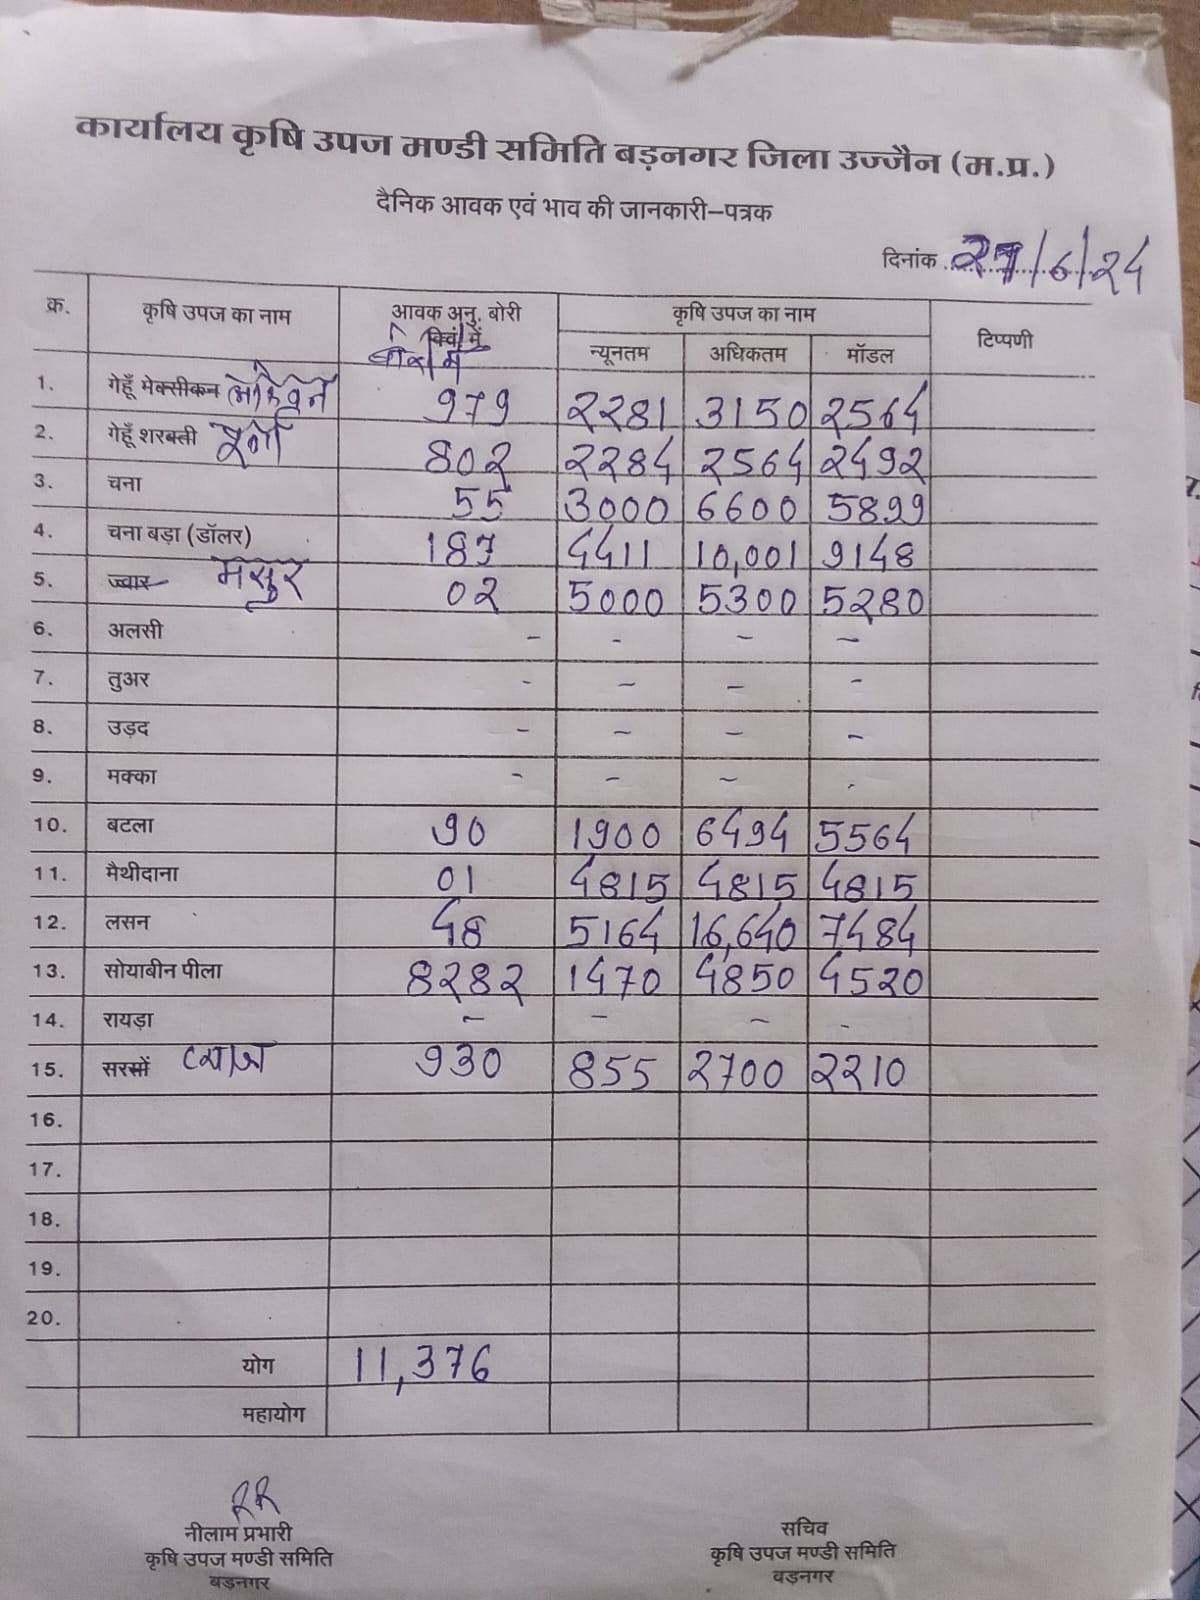 कार्यालय कृषि उपज मण्डी समिति बड़नगर जिला उज्जैन (म.प्र.)
दैनिक आवक एवं भाव की जानकारी–पत्रक
दिनांक 27/6/24
क्र. कृषि उपज का नाम आवक अनु. बोरी क्विं में कृषि उपज का नाम टिप्पणी
न्यूनतम अधिकतम मॉडल
1. गेहूँ मेक्सीकन लोकवन 979 2281 3150 2564
2. गेहूँ शरबती पूर्णा 802 2284 2564 2492
3. चना 55 3000 6600 5899
4. चना बड़ा (डॉलर) 187 4411 10,001 9148
5. ज्वार मसुर 02 5000 5300 5280
6. अलसी - - - -
7. तुअर - - - -
8. उड़द - - - -
9. मक्का - - - -
10. बटला 90 1900 6494 5564
11. मैथीदाना 01 4815 4815 4815
12. लसन 48 5164 16,640 7484
13. सोयाबीन पीला 8282 1470 4850 4520
14. रायड़ा - - - -
15. सरसों प्याज 930 855 2700 2210
16.
17.
18.
19.
20.
योग 11,376
महायोग
नीलाम प्रभारी
कृषि उपज मण्डी समिति
बड़नगर
सचिव
कृषि उपज मण्डी समिति
बड़नगर